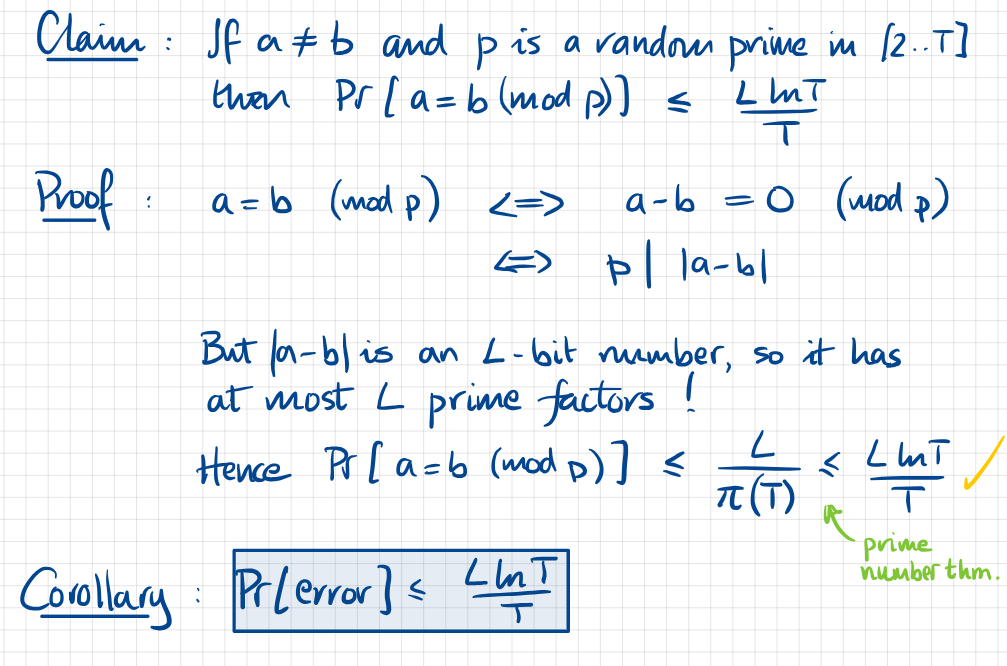 Claim : If a ≠ b and p is a random prime in [2..T]
then Pr[a = b (mod p)] ≤ L ln T / T
Proof : a = b (mod p) <=> a-b = 0 (mod p)
<=> p | |a-b|
But |a-b| is an L-bit number, so it has
at most L prime factors !
Hence Pr[a = b (mod p)] ≤ L / π(T) ≤ L ln T / T ✓
prime
number thm.
Corollary : Pr[error] ≤ L ln T / T